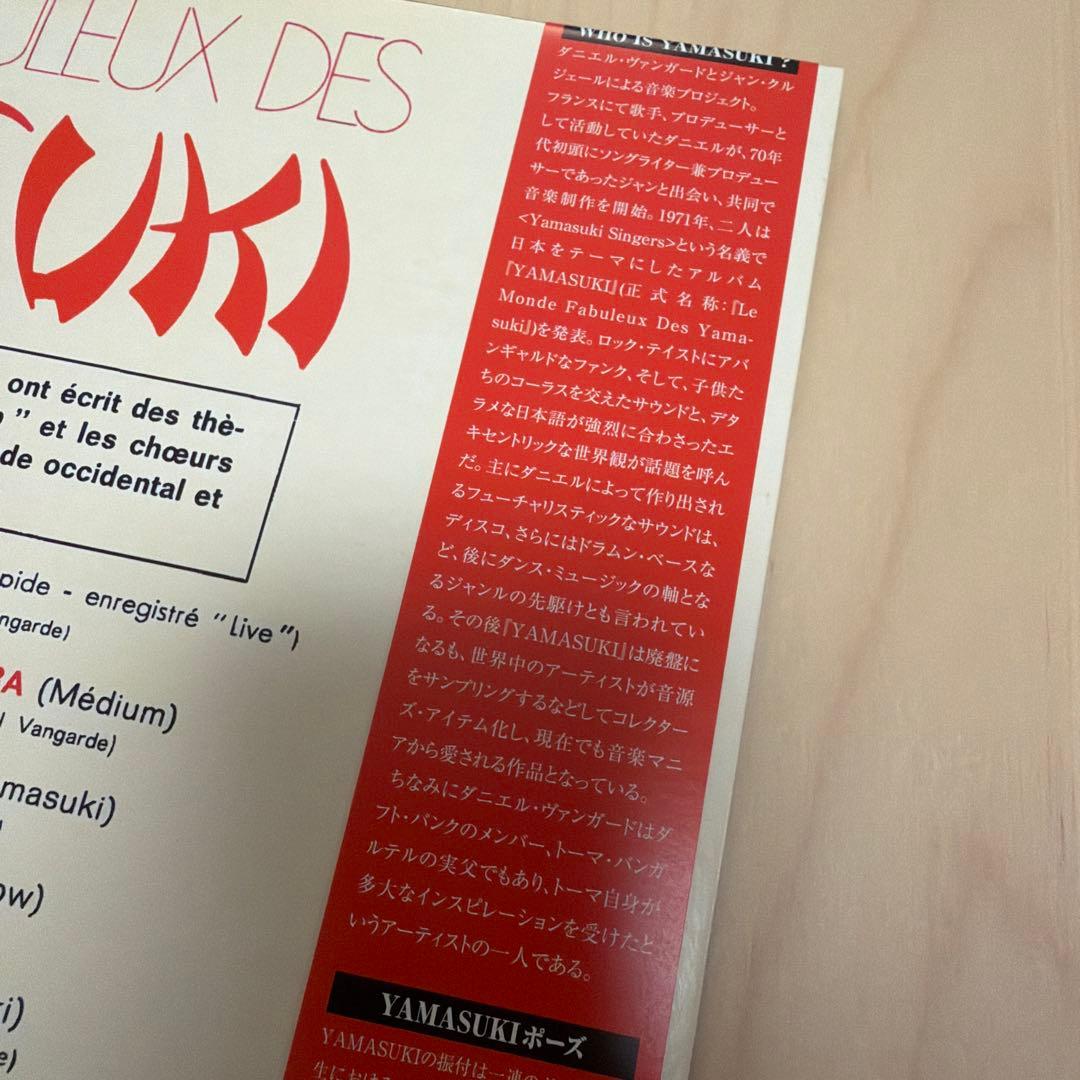 ULEUX DES
UKI
ont écrit des thè-
” et les chœurs
de occidental et
pide - enregistré “Live”)
ngarde)
RA (Médium)
Vangarde)
masuki)
ow)
WHO IS YAMASUKI?
ダニエル・ヴァンガードとジャン・クル
ジェールによる音楽プロジェクト。
フランスにて歌手、プロデューサーと
して活動していたダニエルが、70年
代初頭にソングライター兼プロデュー
サーであったジャンと出会い、共同で
音楽制作を開始。1971年、二人は
<Yamasuki Singers>という名義で
日本をテーマにしたアルバム
『YAMASUKI』(正式名称:『Le
Monde Fabuleux Des Yama-
suki』)を発表。ロック・テイストにアバ
ンギャルドなファンク、そして、子供た
ちのコーラスを交えたサウンドと、デタ
ラメな日本語が強烈に合わさったエ
キセントリックな世界観が話題を呼ん
だ。主にダニエルによって作り出され
るフューチャリスティックなサウンドは、
ディスコ、さらにはドラムン・ベースな
ど、後にダンス・ミュージックの軸とな
るジャンルの先駆けとも言われてい
る。その後『YAMASUKI』は廃盤に
なるも、世界中のアーティストが音源
をサンプリングするなどしてコレクター
ズ・アイテム化し、現在でも音楽マニ
アから愛される作品となっている。
ちなみにダニエル・ヴァンガードはダ
フト・パンクのメンバー、トーマ・バンガ
ルテルの実父でもあり、トーマ自身が
多大なインスピレーションを受けたと
いうアーティストの一人である。
YAMASUKIポーズ
YAMASUKIの振付は一連の
生における